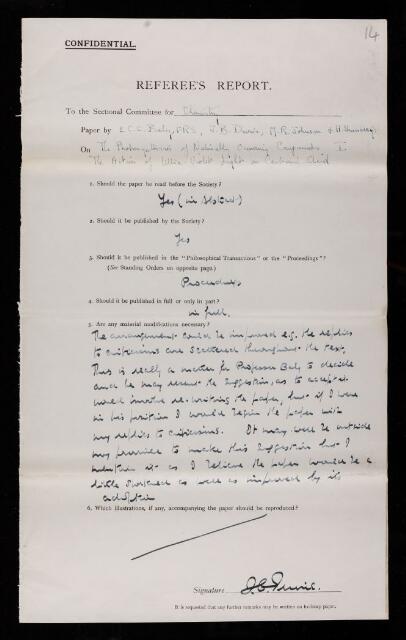 14
CONFIDENTIAL.
REFEREE'S REPORT.
To the Sectional Committee for Chemistry
Paper by E.C.C. Baly, FRS, J.B. Davies, M.R. Johnson & H. Shanassy
On The Photosynthesis of Naturally Occurring Compounds I
The Action of Ultra Violet Light on Carbonic Acid
1. Should the paper be read before the Society?
Yes (in abstract)
2. Should it be published by the Society?
Yes
3. Should it be published in the "Philosophical Transactions" or the "Proceedings"?
(See Standing Orders on opposite page.)
Proceedings
4. Should it be published in full or only in part?
in full.
5. Are any material modifications necessary?
The arrangement could be improved e.g. the replies
to criticisms are scattered throughout the text.
This is really a matter for Professor Baly to decide
and he may resent the suggestion, as to accept it
would involve re-writing the paper, but if I were
in his position I would begin the paper with
my replies to criticisms. It may well be outside
my province to make this suggestion but I
mention it as I believe the paper would be a
little shortened as well as improved by its
adoption
6. Which illustrations, if any, accompanying the paper should be reproduced?
Signature
It is requested that any further remarks may be written on foolscap paper.